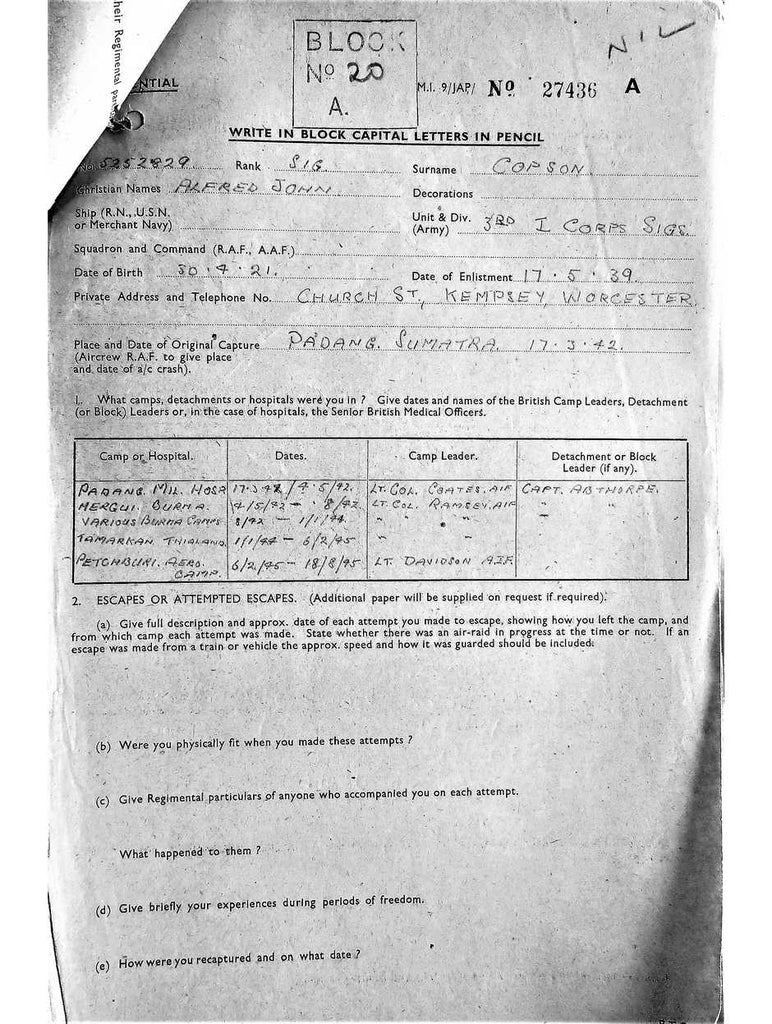 heir Regimental
NTIAL
BLOCK
No 20
A.
NIL
M.I. 9/JAP/ No 27436 A
WRITE IN BLOCK CAPITAL LETTERS IN PENCIL
No. 5252829 Rank SIG Surname COPSON
Christian Names ALFRED JOHN Decorations
Ship (R.N., U.S.N. or Merchant Navy)
Unit & Div. (Army) 3RD I CORPS SIGS.
Squadron and Command (R.A.F., A.A.F.)
Date of Birth 30.4.21. Date of Enlistment 17.5.39
Private Address and Telephone No. CHURCH ST, KEMPSEY, WORCESTER
Place and Date of Original Capture PADANG. SUMATRA. 17.3.42.
(Aircrew R.A.F. to give place
and date of a/c crash).
1. What camps, detachments or hospitals were you in ? Give dates and names of the British Camp Leaders, Detachment
(or Block) Leaders or, in the case of hospitals, the Senior British Medical Officers.
Camp or Hospital. Dates. Camp Leader. Detachment or Block Leader (if any).
PADANG. MIL. HOSP 17.3.42/4.5/42. LT. COL. COATES. AIF CAPT. ABTHORPE.
MERGUI. BURMA. 4/5/42 - 8/42 LT. COL. RAMSEY. AIF " "
VARIOUS BURMA CAMPS 8/42 - 1/1/44. " " " "
TAMARKAN THIALAND. 1/1/44 - 6/2/45 " "
PETCHBURI. AERO. CAMP. 6/2/45 - 18/8/45 LT. DAVIDSON A.I.F.
2. ESCAPES OR ATTEMPTED ESCAPES. (Additional paper will be supplied on request if required).
(a) Give full description and approx. date of each attempt you made to escape, showing how you left the camp, and
from which camp each attempt was made. State whether there was an air-raid in progress at the time or not. If an
escape was made from a train or vehicle the approx. speed and how it was guarded should be included.
(b) Were you physically fit when you made these attempts ?
(c) Give Regimental particulars of anyone who accompanied you on each attempt.
What happened to them ?
(d) Give briefly your experiences during periods of freedom.
(e) How were you recaptured and on what date ?